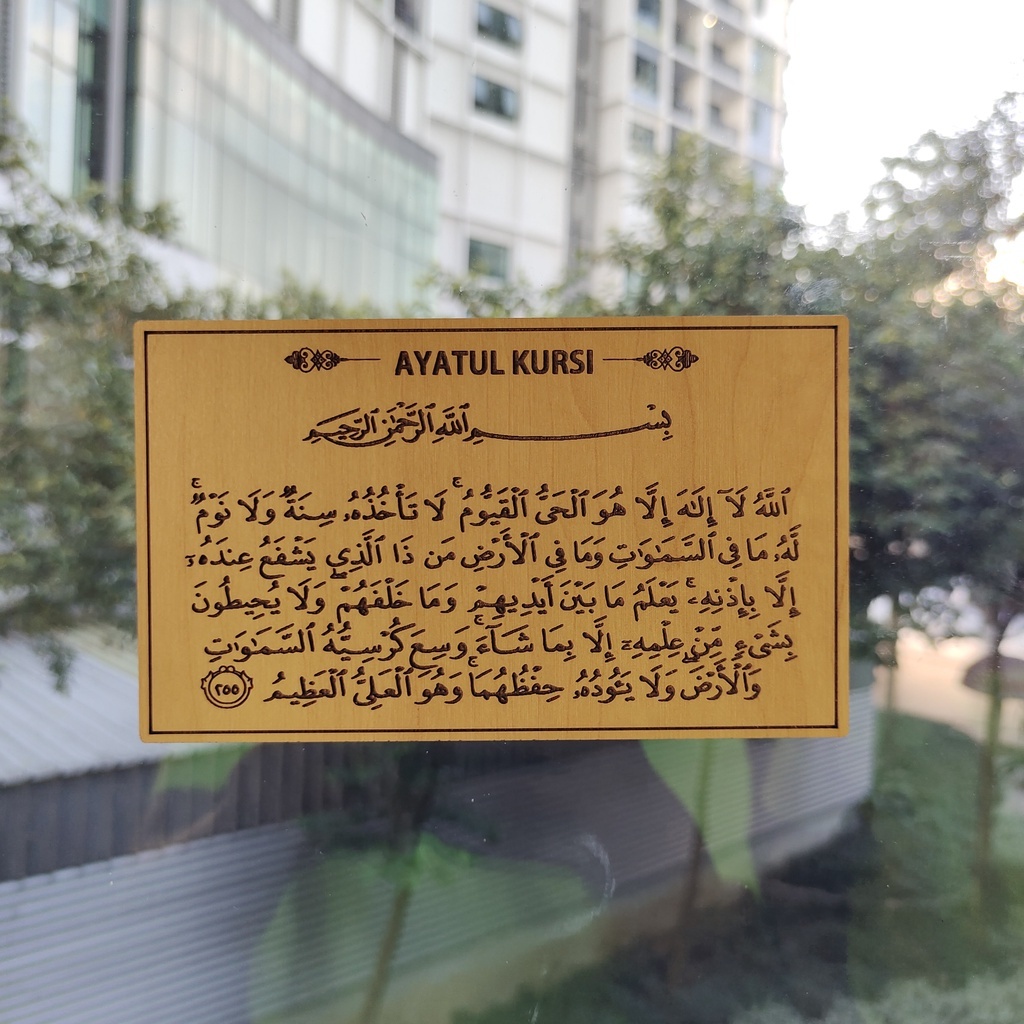 AYATUL KURSI
بِسْمِ ٱللَّهِ ٱلرَّحْمَٰنِ ٱلرَّحِيمِ
ٱللَّهُ لَآ إِلَٰهَ إِلَّا هُوَ ٱلْحَىُّ ٱلْقَيُّومُ ۚ لَا تَأْخُذُهُۥ سِنَةٌ وَلَا نَوْمٌ ۚ
لَّهُۥ مَا فِى ٱلسَّمَٰوَٰتِ وَمَا فِى ٱلْأَرْضِ مَن ذَا ٱلَّذِى يَشْفَعُ عِندَهُۥٓ
إِلَّا بِإِذْنِهِۦ ۚ يَعْلَمُ مَا بَيْنَ أَيْدِيهِمْ وَمَا خَلْفَهُمْ ۖ وَلَا يُحِيطُونَ
بِشَىْءٍ مِّنْ عِلْمِهِۦٓ إِلَّا بِمَا شَآءَ ۚ وَسِعَ كُرْسِيُّهُ ٱلسَّمَٰوَٰتِ
وَٱلْأَرْضَ ۖ وَلَا يَـُٔودُهُۥ حِفْظُهُمَا ۚ وَهُوَ ٱلْعَلِىُّ ٱلْعَظِيمُ ٢٥٥